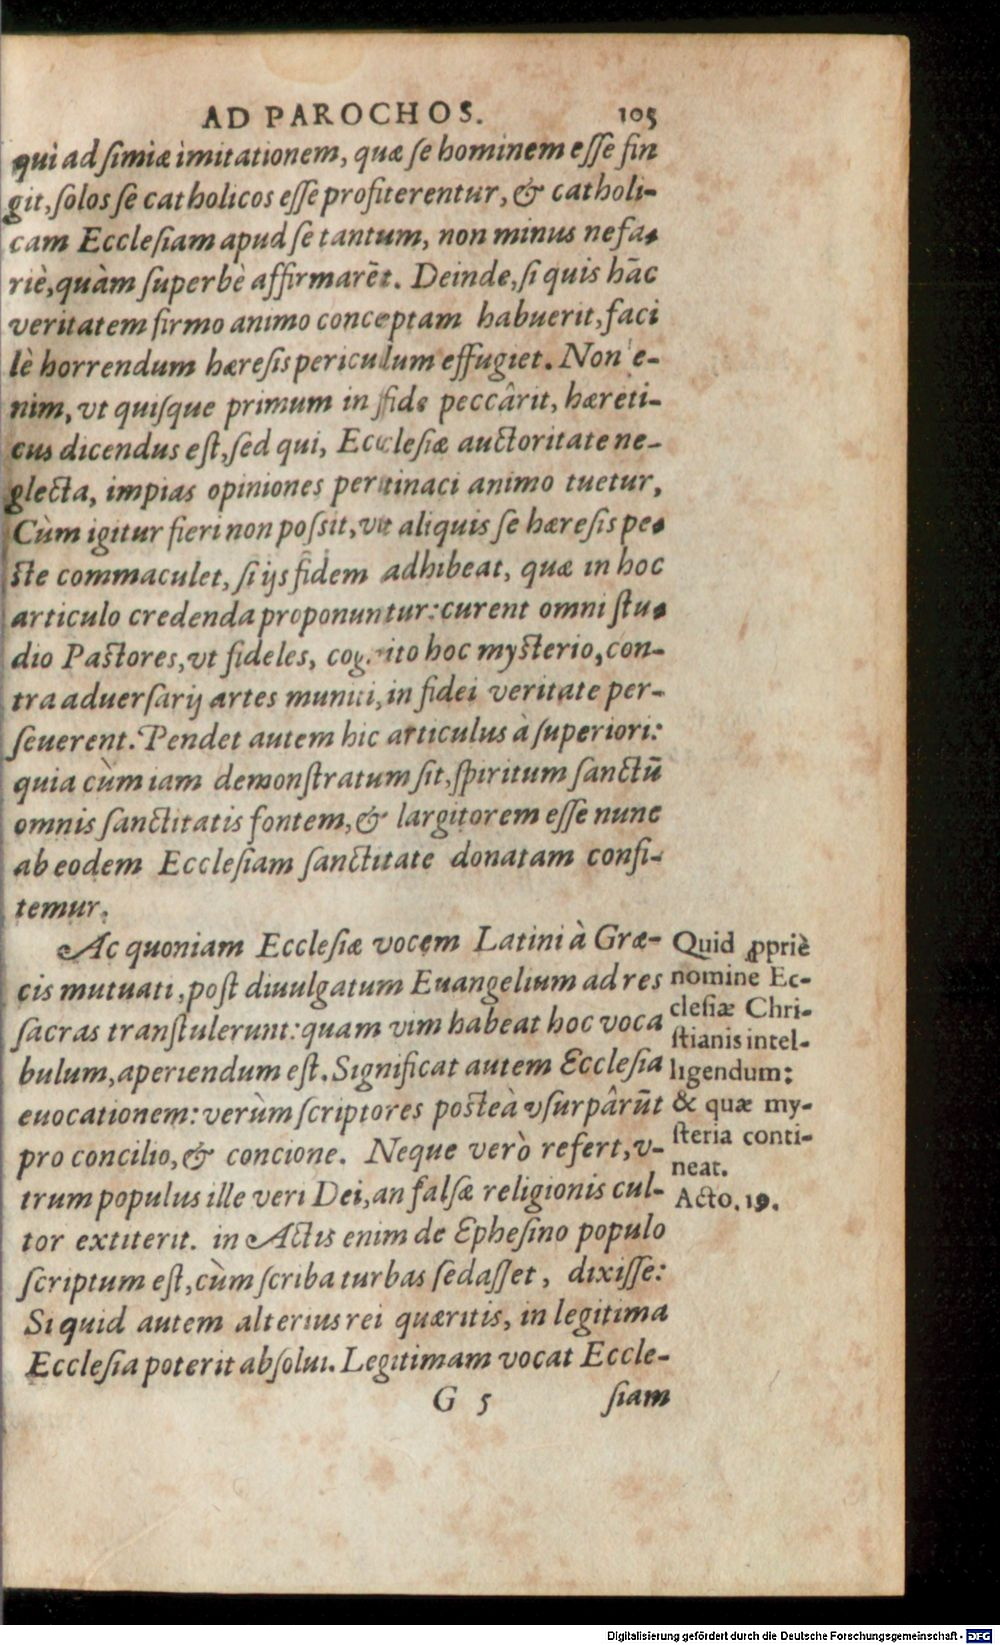 AD PAROCHOS. 105
qui ad ſimiæ imitationem, quæ ſe hominem eſſe fin
git, ſolos ſe catholicos eſſe profiterentur, & catholi-
cam Eccleſiam apud ſe tantum, non minus nefa-
riè, quàm ſuperbè affirmarēt. Deinde, ſi quis hāc
veritatem firmo animo conceptam habuerit, faci
lè horrendum hæreſis periculum effugiet. Non e-
nim, vt quiſque primum in fide peccârit, hæreti-
cus dicendus eſt, ſed qui, Eccleſiæ auctoritate ne-
glecta, impias opiniones pertinaci animo tuetur,
Cùm igitur fieri non poſsit, vt aliquis ſe hæreſis pe-
ſte commaculet, ſi ijs fidem adhibeat, quæ in hoc
articulo credenda proponuntur: curent omni ſtu-
dio Paſtores, vt fideles, cognito hoc myſterio, con-
tra aduerſarij artes muniti, in fidei veritate per-
ſeuerent. Pendet autem hic articulus à ſuperiori:
quia cùm iam demonſtratum ſit, ſpiritum ſanctū
omnis ſanctitatis fontem, & largitorem eſſe nunc
ab eodem Eccleſiam ſanctitate donatam confi-
temur.
Ac quoniam Eccleſiæ vocem Latini à Græ-
cis mutuati, poſt diuulgatum Euangelium ad res
ſacras tranſtulerunt: quam vim habeat hoc voca
bulum, aperiendum eſt. Significat autem Eccleſia
euocationem: verùm ſcriptores poſteà vſurpârūt
pro concilio, & concione. Neque verò refert, v-
trum populus ille veri Dei, an falſæ religionis cul-
tor extiterit. in Actis enim de Epheſino populo
ſcriptum eſt, cùm ſcriba turbas ſedaſſet, dixiſſe:
Si quid autem alterius rei quæritis, in legitima
Eccleſia poterit abſolui. Legitimam vocat Eccle-
G 5 ſiam
Quid ꝓpriè
nomine Ec-
cleſiæ Chri-
ſtianis intel-
ligendum:
& quæ my-
ſteria conti-
neat.
Acto. 19.
Digitalisierung gefördert durch die Deutsche Forschungsgemeinschaft - DFG